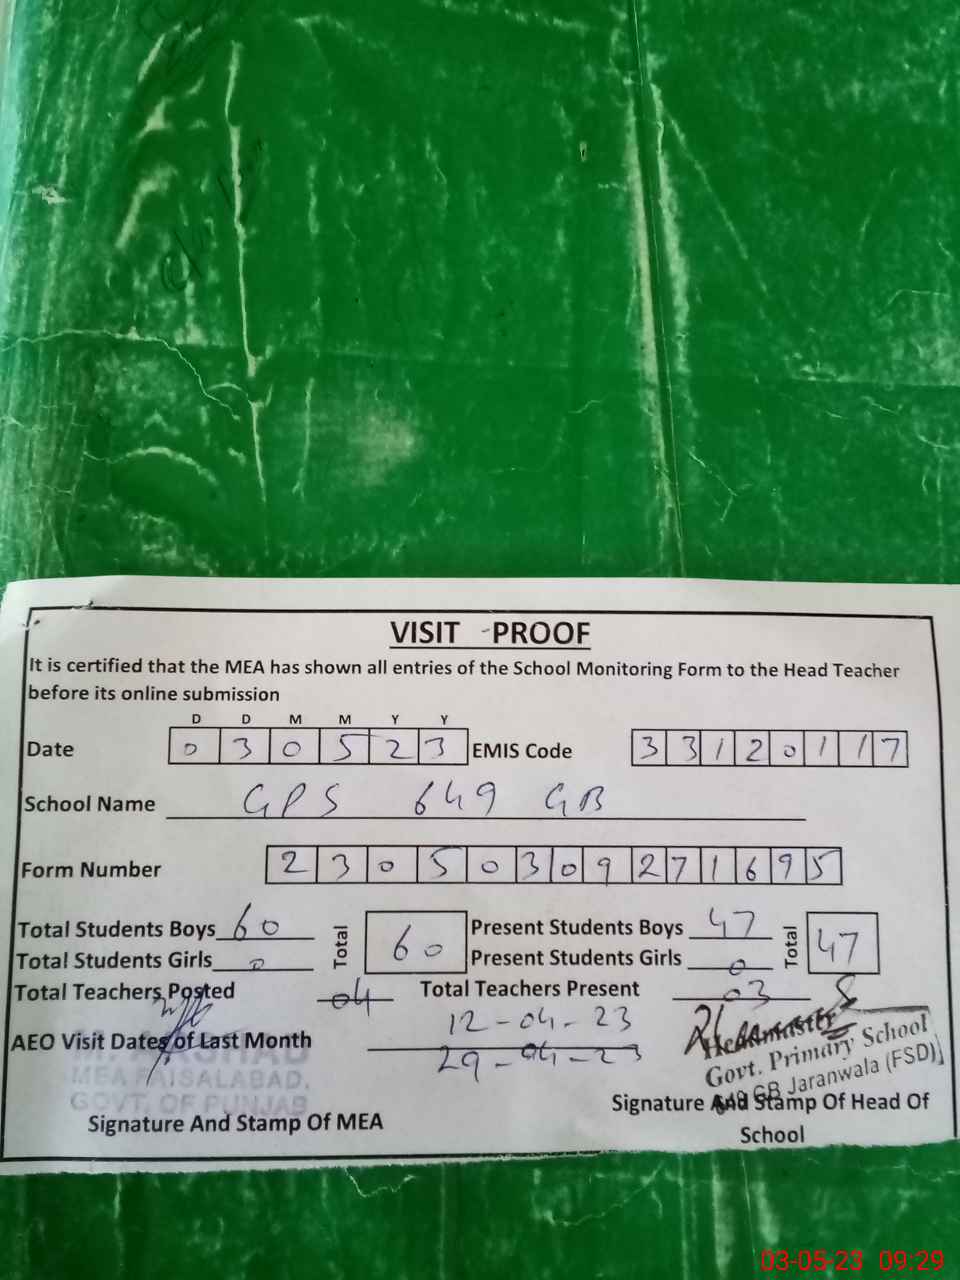 VISIT -PROOF
It is certified that the MEA has shown all entries of the School Monitoring Form to the Head Teacher
before its online submission
D D M M Y Y
Date 0 3 0 5 2 3 EMIS Code 3 3 1 2 0 1 1 7
School Name GPS 649 GB
Form Number 2 3 0 5 0 3 0 9 2 7 1 6 9 5
Total Students Boys 60 Total 60 Present Students Boys 47 Total 47
Total Students Girls 0 Present Students Girls 0
Total Teachers Posted 04 Total Teachers Present 03
AEO Visit Dates of Last Month 12-04-23
29-04-23
M. ARSHAD
MEA FAISALABAD.
GOVT. OF PUNJAB
Headmaster
Govt. Primary School
649 GB Jaranwala (FSD)
Signature And Stamp Of MEA
Signature And Stamp Of Head Of
School
03-05-23 09:29